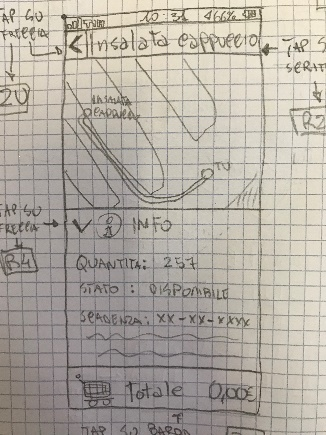 TAP SU
FRECCIA
10:31 66%
< Insalata cappuccio
TAP S
INSALATA
TU
TAP SU
FRECCIA
INFO
B4
QUANTITA: 257
STATO : DISPONIBILE
SCADENZA: XX-XX-XXXX
Totale 0,00€
TAP SU BARRA